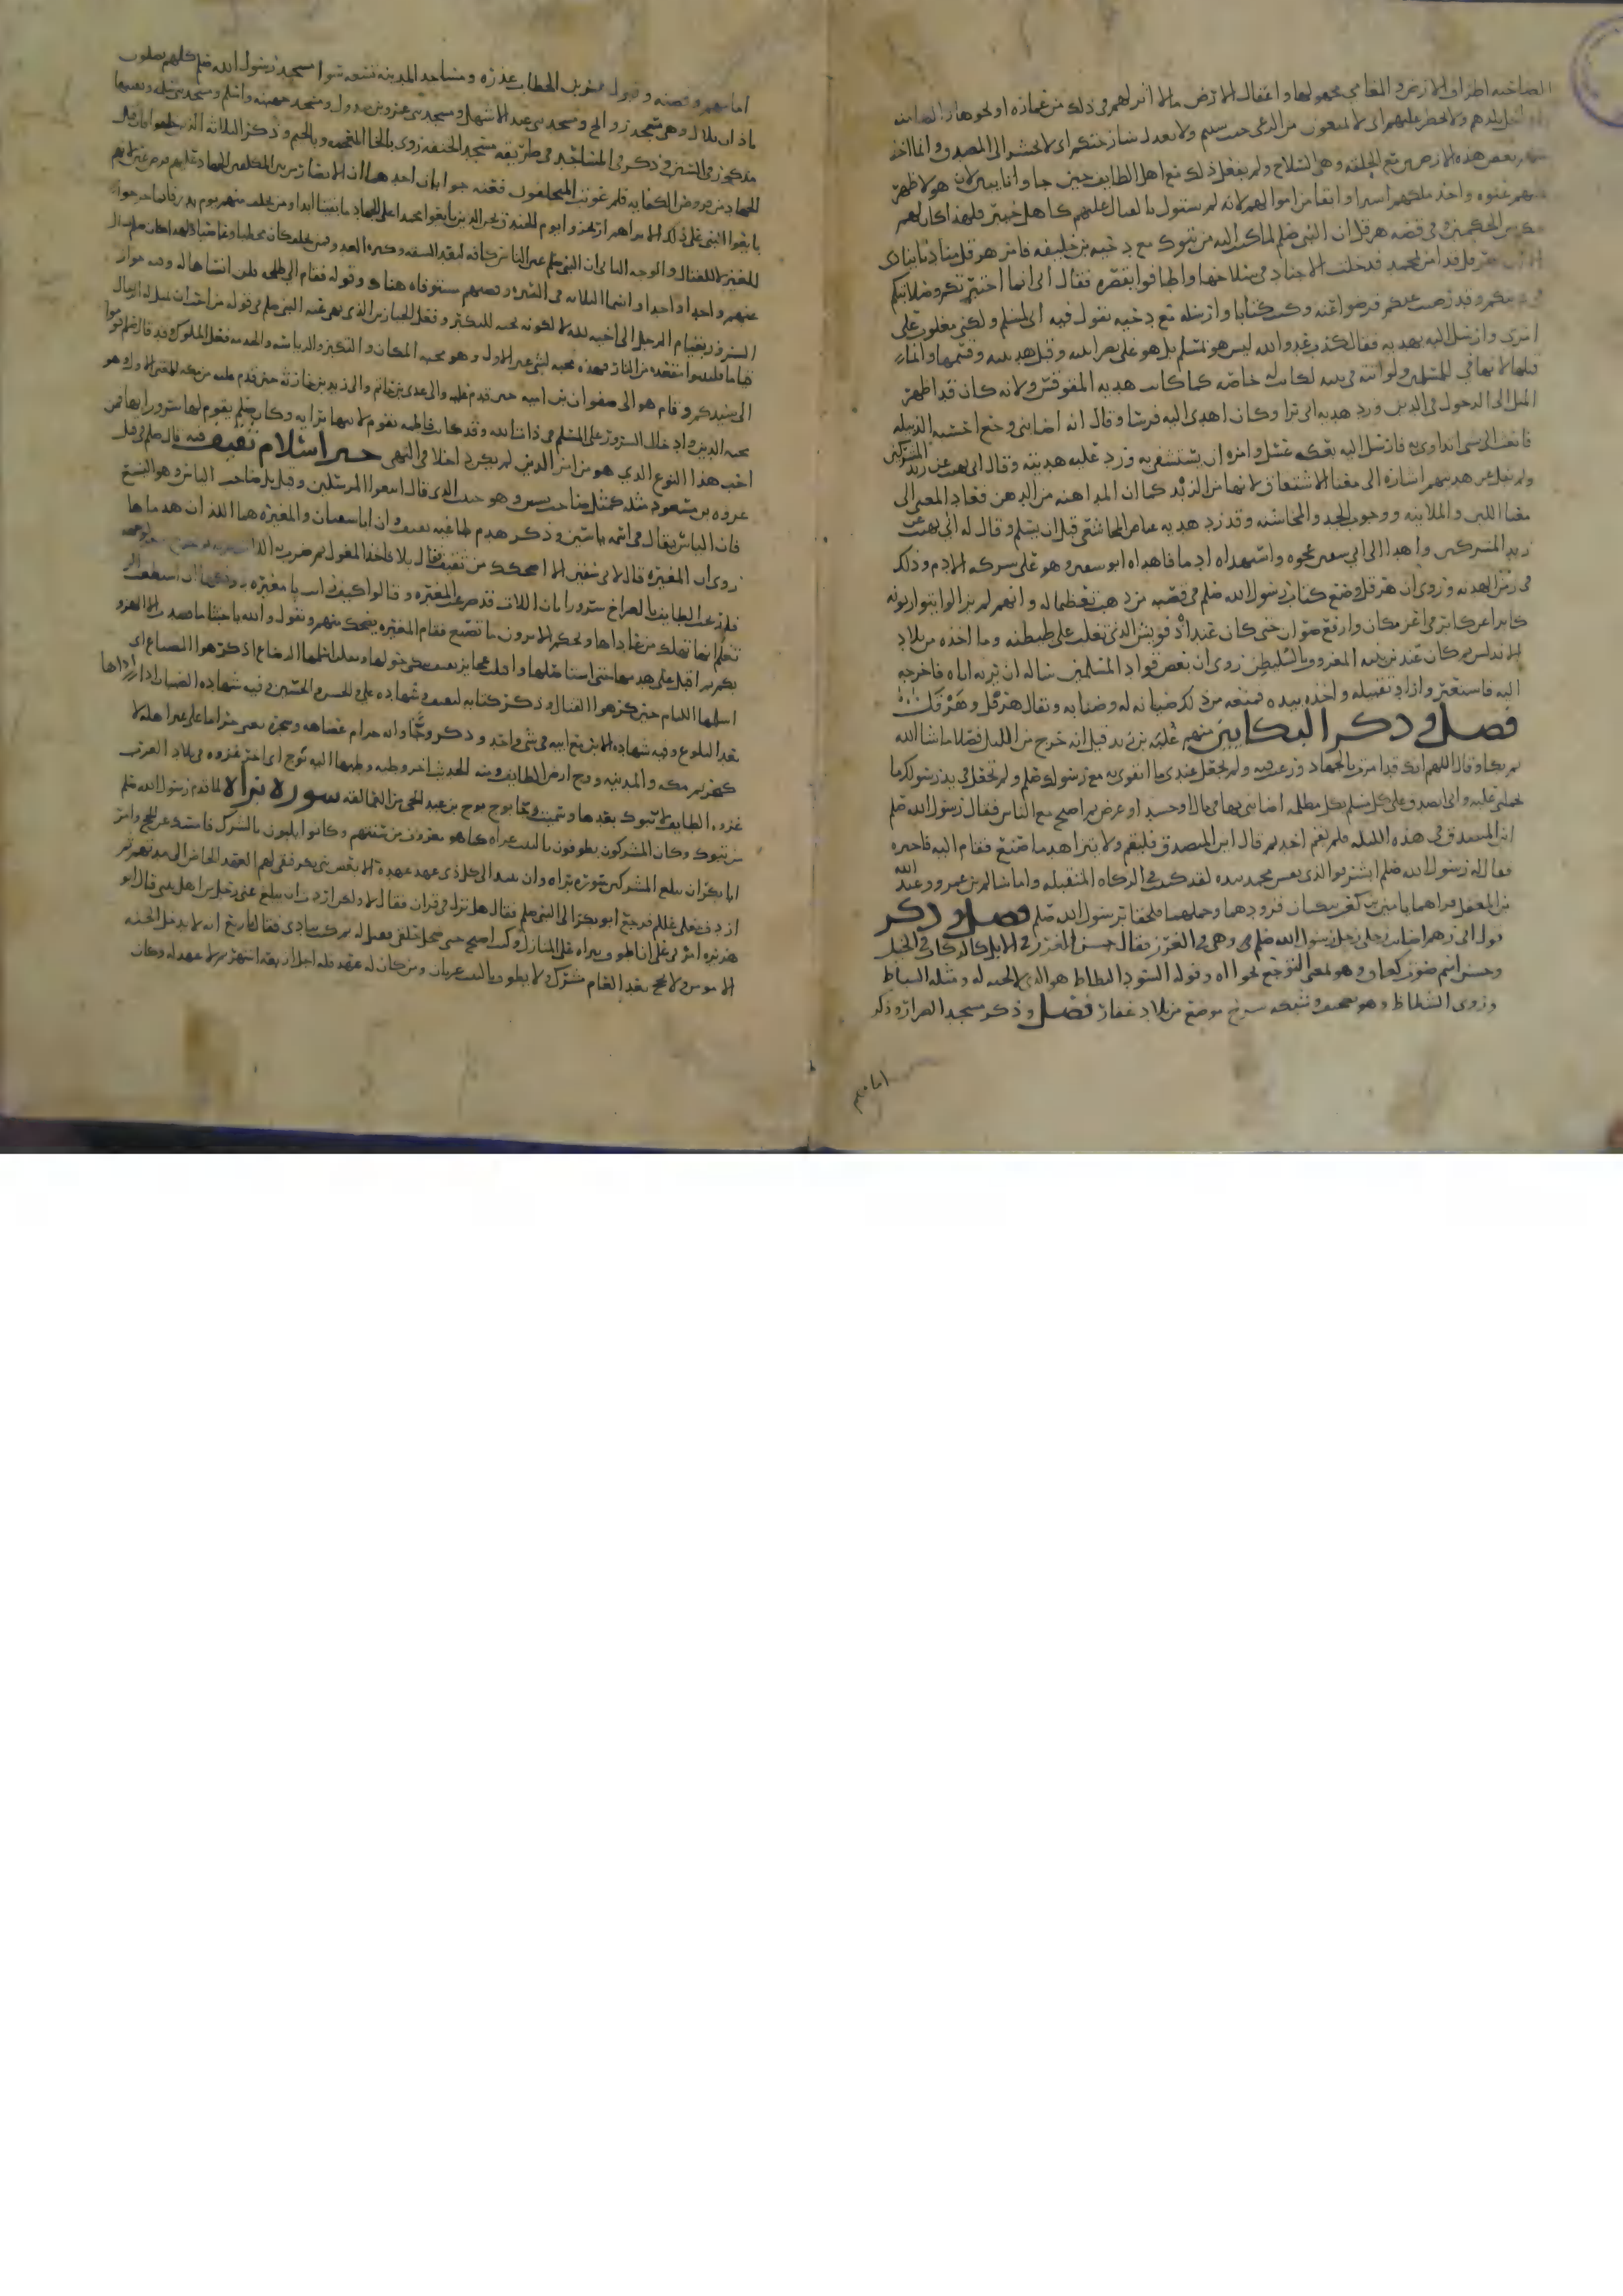 الضاحية اطراف الارض والمعامي مجهولها واغفال الارض ما لا اثر لهم فيه ذلك من عمارة او نحوها
بلدهم ولا تحظر عليهم اي لا تمنعون من الرعي حيث شيتم ولا تعدل سارحتكم اي لا تحشر الى المصدق وانما اخذ
بعض هذه الارضين مع الحلقة وهي السلاح ولم يفعل ذلك مع اهل الطايف حين جاوا تايبين لان هولا ظهر
عليهم عنوة واخذ ملكهم اسيرا وابقا من اموالهم لانه لم يستول بالقتال عليهم كاهل خيبر فلهذا كان لهم
حكم بين الحكمين وفي قصة هرقل ان النبي صلم لما كتب اليه من تبوك مع دحية بن خليفة فامر هرقل مناديا ينادي
هرقل قد امن بمحمد فدخلت الاجناد في سلاحها واطافوا بقصره فقال اني انما اختبر تكم وصلابتكم
في دينكم وقد رضيت عنكم فرضوا عنه وكتب كتابا وارسله مع دحية يقول فيه اني مسلم ولكني مغلوب على
امري وارسل اليه بهدية فقال كذب عدو الله ليس هو بمسلم بل هو على نصرانيته وقبل هديته وقسمها وانما
قبلها لانها في للمسلمين ولو اتته في بيته لكانت له خاصة كما كانت هدية المقوقس ولانه كان قد اظهر
الميل الى الدخول في الدين ورد هدية ابي برا وكان اهدى اليه فرسا وقال انه اصابني وجع احسبه الدبيلة
فابعث الى بشي اتداوى به فارسل اليه بعكة عسل وامره ان يستشفي به ورد عليه هديته وقال اني نهيت عن زبد المشركين
ولم يقل عن هديتهم اشارة الى معنا الاشتقاق لانها من الزبد كما ان المداهنة من الدهن فعاد المعنى الى
معنا اللين والملاينة ووجوب الجد والمخاشنة وقد رد هدية عياض المجاشعي قبل ان يسلم وقال له اني نهيت عن
زبد المشركين واهدا الى ابي سفين عجوة واستهداه ادما فاهداه ابو سفين وهو على شركه الادم وذلك
في زمن الهدنة وروى ان هرقل وضع كتاب رسول الله صلم في قصبة من ذهب تعظيما له وانهم لم يزالوا يتوارثونه
كابرا عن كابر في اعز مكان وارفع صوان حتى كان عند اذفونش الذي تغلب على طليطلة وما اخذه من بلاد
الاندلس ثم كان عند ابن ابنه المعروف بالسليطين روى ان بعض قواد المسلمين ساله ان يريه اياه فاخرجه
اليه فاستعبر واراد تقبيله واخذه بيده فمنعه من ذلك صيانة له وضنا به ويقال هرقل وهرقل
فصل وذكر البكايين منهم علبة بن زيد قيل انه خرج من الليل فصلا ما شا الله
ثم بكا وقال اللهم انك قد امرت بالجهاد ورغبت فيه ولم تجعل عندي ما اتقوى به مع رسولك صلم ولم تجعل في يد رسولك ما
يحملني عليه واني اتصدق على كل مسلم بكل مظلمة اصابني بها في مال او جسد او عرض ثم اصبح مع الناس فقال رسول الله صلم
اين المتصدق في هذه الليلة فلم يقم احد ثم قال اين المتصدق فليقم ولا يتزاهد ما صنع فقام اليه فاخبره
فقال له رسول الله صلم ابشر فوالذي نفس محمد بيده لقد كتبت في الزكاة المتقبلة واما سالم بن عمير وعبد الله
بن المغفل فراهما يامين بن كعب يبكيان فزودهما وحملهما فلحقا برسول الله صلم فصل وذكر
قول ابي رهم اصابت رجلي رجل رسول الله صلم وهي في الغرز فقال حسن الغرز في الابل كالركاب في الخيل
وحسن اسم صوت كعاد وهو لمعنى التوجع نحو اه وقوله السود الثطاط هو الذي لا لحية له ومثله السناط
وروى الشظاظ وهو تصحيف وشبكة شرخ موضع من بلاد غفار فصل وذكر مسجد الضرار وذكر
اما منهم
اما منهم وقصته وقول عمر بن الخطاب عذره ومساجد المدينة تسعة سوا مسجد رسول الله صلم كلهم يصلون
باذان بلال وهي مسجد راتج ومسجد بني عبد الاشهل ومسجد بني عمرو بن مبذول ومسجد جهينة واسلم ومسجد بني سلمة وبقيتها
مذكور في السير وذكر في المساجد في طريقه مسجد الخيفة روى بالخا المعجمة وبالجيم وذكر الثلاثة الذين خلفوا فان قيل
الجهاد من فروض الكفاية فلم عوتب المخلفون فعنه جوابان احدهما ان الانصار من بين المكلفين الجهاد عليهم فرض عين لانهم
بايعوا النبي على ذلك الا تراهم ارتجزوا يوم الخندق نحن الذين بايعوا محمدا على الجهاد ما بقينا ابدا ومن تخلف منهم يوم بدر فانما خرجوا
للعير لا للقتال والوجه الثاني ان النبي صلم عير الناس كافة لبعد الشقة وكثرة العدو فمن تخلف كان مخطيا وعاصيا
عنهم واحدا واحدا واسما الثلاثة في السيرة وقصتهم مستوفاه هناك وقوله فقام الي طلحة
السرور بقيام الرجل الى اخيه لله لا لكونه محبة للتكبر وفعل الجبارين الذي نهى عنه النبي صلم في قوله من احب ان يمثل له الرجال
قياما فليتبوا مقعده من النار فهذه محبة لشي غير الاول وهو محبة المكان والتكبر والرياسة
الى سيدكم وقام هو الى صفوان بن امية حين قدم عليه والى عدي بن حاتم والى زيد بن حارثة حين قدم عليه من مكة
محبة الدين وادخال السرور على المسلم في ذات الله وقد كانت فاطمة تقوم لابيها برا به وكان صلم يقوم لها سرورا بها فمن
احب هذا النوع الذي هو من امر الدين لم يكن داخلا في النهي خبر اسلام ثقيف فيه قال صلم في قتل
عروة بن مسعود مثله كمثل صاحب يس وهو حبيب الذي قال اتبعوا المرسلين وقيل بل صاحب الياس وهو اليسع
فان الياس يقال في اسمه ياسين وذكر هدم طاغية ثقيف وان ابا سفيان والمغيرة هما اللذان هدماها
روى ان المغيرة قال لابي سفين الا اضحكك من ثقيف فقال بلا فاخذ المعول ثم ضرب به
فارتجت الطايف بالصراخ سرورا بان اللات قد صرعت المغيرة وقالوا كيف رايت يا مغيرة
تعلم انها تهلك من عاداها ويحكم الا ترون ما تصنع فقام المغيرة يضحك منهم ويقول والله يا خبثا ما قصدت الا الهزو
بكم ثم اقبل على هدمها حتى استاصلها واقبلت عجايز ثقيف يبكين حولها ويقلن اسلمها الرضاع اذ كرهوا المصاع اي
اسلمها اللئام حين كرهوا القتال وذكر كتابه لثقيف وشهادة علي والحسن والحسين وفيه شهادة الصبيان اذا ارادها
بعد البلوغ وفيه شهادة الابن مع ابيه في شي واحد وذكر وجا وانه حرام عضاهه وشجره يعني حراما على غير اهله لا
كتحريم مكة والمدينة ووج ارض الطايف ومنه الحديث اخر وطية وطيها الله بوج اي اخر غزوة في بلاد العرب
غزوة الطايف لا تبوك بعدها وسميت وجا بوج بن عبد الحي من العمالقة سورة براة لما قدم رسول الله صلم
من تبوك وكان المشركون يطوفون بالبيت عراة كما هو معروف من سنتهم وكانوا يلبون بالشرك فامسك عن الحج وامر
ابا بكر ان يبلغ المشركين سورة براة وان ينبذ الى كل ذي عهد عهده الا بعض بني بكر فبقى لهم العهد الخاص الى مدتهم ثم
اردف بعلي عللم فرجع ابو بكر الى النبي صلم فقال هل نزل في قران فقال لا ولكن اردت ان يبلغ عني رجل من اهل بيتي قال ابو
هريرة امرني علي ان اطوف ببراة على المنازل وكنت اصيح حتى صحل حلقي فقيل له بم كنت تنادي فقال باربع انه لا يدخل الجنة
الا مومن ولا يحج بعد العام مشرك ولا يطوف بالبيت عريان ومن كان له عهد فله اجل اربعة اشهر ثم لا عهد له وكان